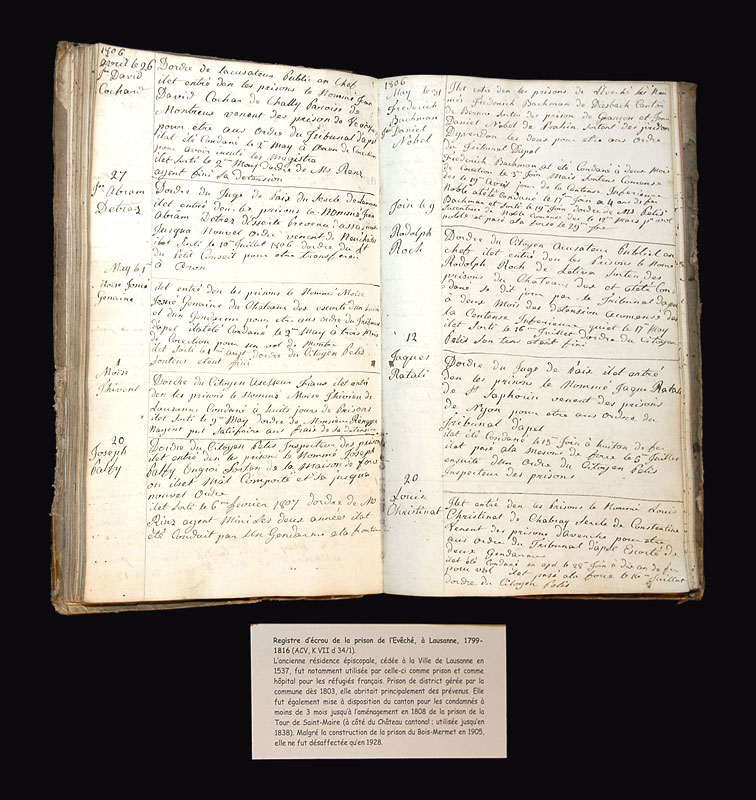 1806
Avril le 26
Jn David
Cochand
Dordre de lacusateur Public en Chef
ilet entré den les prisons le Nommé Jean
David Cochan de Chally Paroise de
Montreux venent des prison de Vevey
pour etre aus ordre du Tribunal dapel
ilat été Condané le 2me May à Oron de Corection
pour avoir insulté les Magistra
ilet Sorti le 2me May dordre de Mr Renz
agent fini sa detension
27
Jn Abram
Detraz
Dordre du Juge de Paix du Sercle de Lausanne
ilet entré den les prisons le Nommé Jean
Abram Detraz
Jusqua Nouvel Ordre venent de Neuchatel
ilet Sorti le 10me Juillet 1806 dordre du
du Petit Conseil pour etre transferer
à Oron
May le 1
Moïse Josué
Gonaine
ilet entré den les prisons le Nommé Moïse
Josué Gonaine du Chateau des escorté dun
et dun Gendarme pour etre aus ordre du Tribunal
dapel ilatété Condané le 2me May à trois Mois
de Corection pour un vol de Montre
ilet Sorti le 1er augt dordre du Citoyen Pelis
Sontens etent fini
4
Moïse
Thivent
Dordre du Citoyen Asesseur Frans ilet entré
den les prisons le Nommé Moïse Thivent de
Lausanne Condané à huits jours de Prisons
ilet Sorti le 9me May dordre de Monsieur Rengger
Nayent put Satisfaire aus frais de sa detension
20
Joseph
Palfy
Dordre du Citoyen Pelis Inspecteur des prisons
ilet entré den les prisons le Nommé Joseph
Palfy Ongroi Sortan de la Maison de force
ou ilset Mal Comporté et sa jusqua
nouvel Ordre
ilet Sorti le 6me fevrier 1807 dordre de Mr
Rinz agent Mini Les deux années ilat
été Conduit par Un Gendarme ala frontiere
1806
May le 31
Frederich
Bachman
Daniel
Nobel
Ilet entré den les prisons de LEveché les Nom
més Frederich Bachman de Diesbach Canton
de Berne Sorten des prison de Grançon et Jean
Daniel Nobel de Sortent des prison
Dyverdon les deux pour etre aus Ordre
du Tribunal Dapel
Frederich Bachman at été Condané à deux Mois
de Corection le 3me Juin Mais Sontens Comense
des le 19me Avril jour de la Sentense Inferieure
Noble atété Condané le 17me Juin à 4 ans de fer
Bachman et Sorti le 19me Juin dordre de Mr Pelis
Noble Comense des le 12me Mars
noble et pasé ala force le 29me
Juin le 9
Rodolph
Roch
Dordre du Citoyen Acusateur Publiet en
chef ilet entré den les Prisons le Nomé
Rodolph Roch de Sorten des
prisons du Chateaux dus et atété Con
dané se dit jour par le Tribunal dapel
à deux Mois de detension Comense des
la Sentense Inferieure quiet le 17 May
ilet Sorti le 16me Juillet dordre du Citoyen
Pelis son tens etent fini
12
Jaques
Ratali
Dordre du Juge de Paix ilet entré
den les prisons le Nommé Jaque Ratali
de St Saphorin venent des prisons
de Nyon pour etre aus Ordre du
Tribunal dapel
ilat été Condané le 13me Juin à huitan de fer
ilet pasé ala Mesons de force le 5me Juillet
ensuite dun Ordre du Citoyen Pelis
Inspecteur des prisons
20
Louis
Christinat
Ilet entré den les Prisons le Nommé Louis
Christinat de Chabray Sercle de Constantine
Venent des prisons davenche pour etre
aus Ordre du Tribunal dapel Escorté de
deux Gendarmes
ilat été Condané en apel le 28me Juin à dix an de fer
pour vol ilet pasé ala force le 10me Juillet
dordre du Citoyen Pelis
Registre d'écrou de la prison de l'Evêché, à Lausanne, 1799-
1816 (ACV, K VII d 34/1).
L'ancienne résidence épiscopale, cédée à la Ville de Lausanne en
1537, fut notamment utilisée par celle-ci comme prison et comme
hôpital pour les réfugiés français. Prison de district gérée par la
commune dès 1803, elle abritait principalement des prévenus. Elle
fut également mise à disposition du canton pour les condamnés à
moins de 3 mois jusqu'à l'aménagement en 1808 de la prison de la
Tour de Saint-Maire (à côté du Château cantonal ; utilisée jusqu'en
1838). Malgré la construction de la prison du Bois-Mermet en 1905,
elle ne fut désaffectée qu'en 1928.